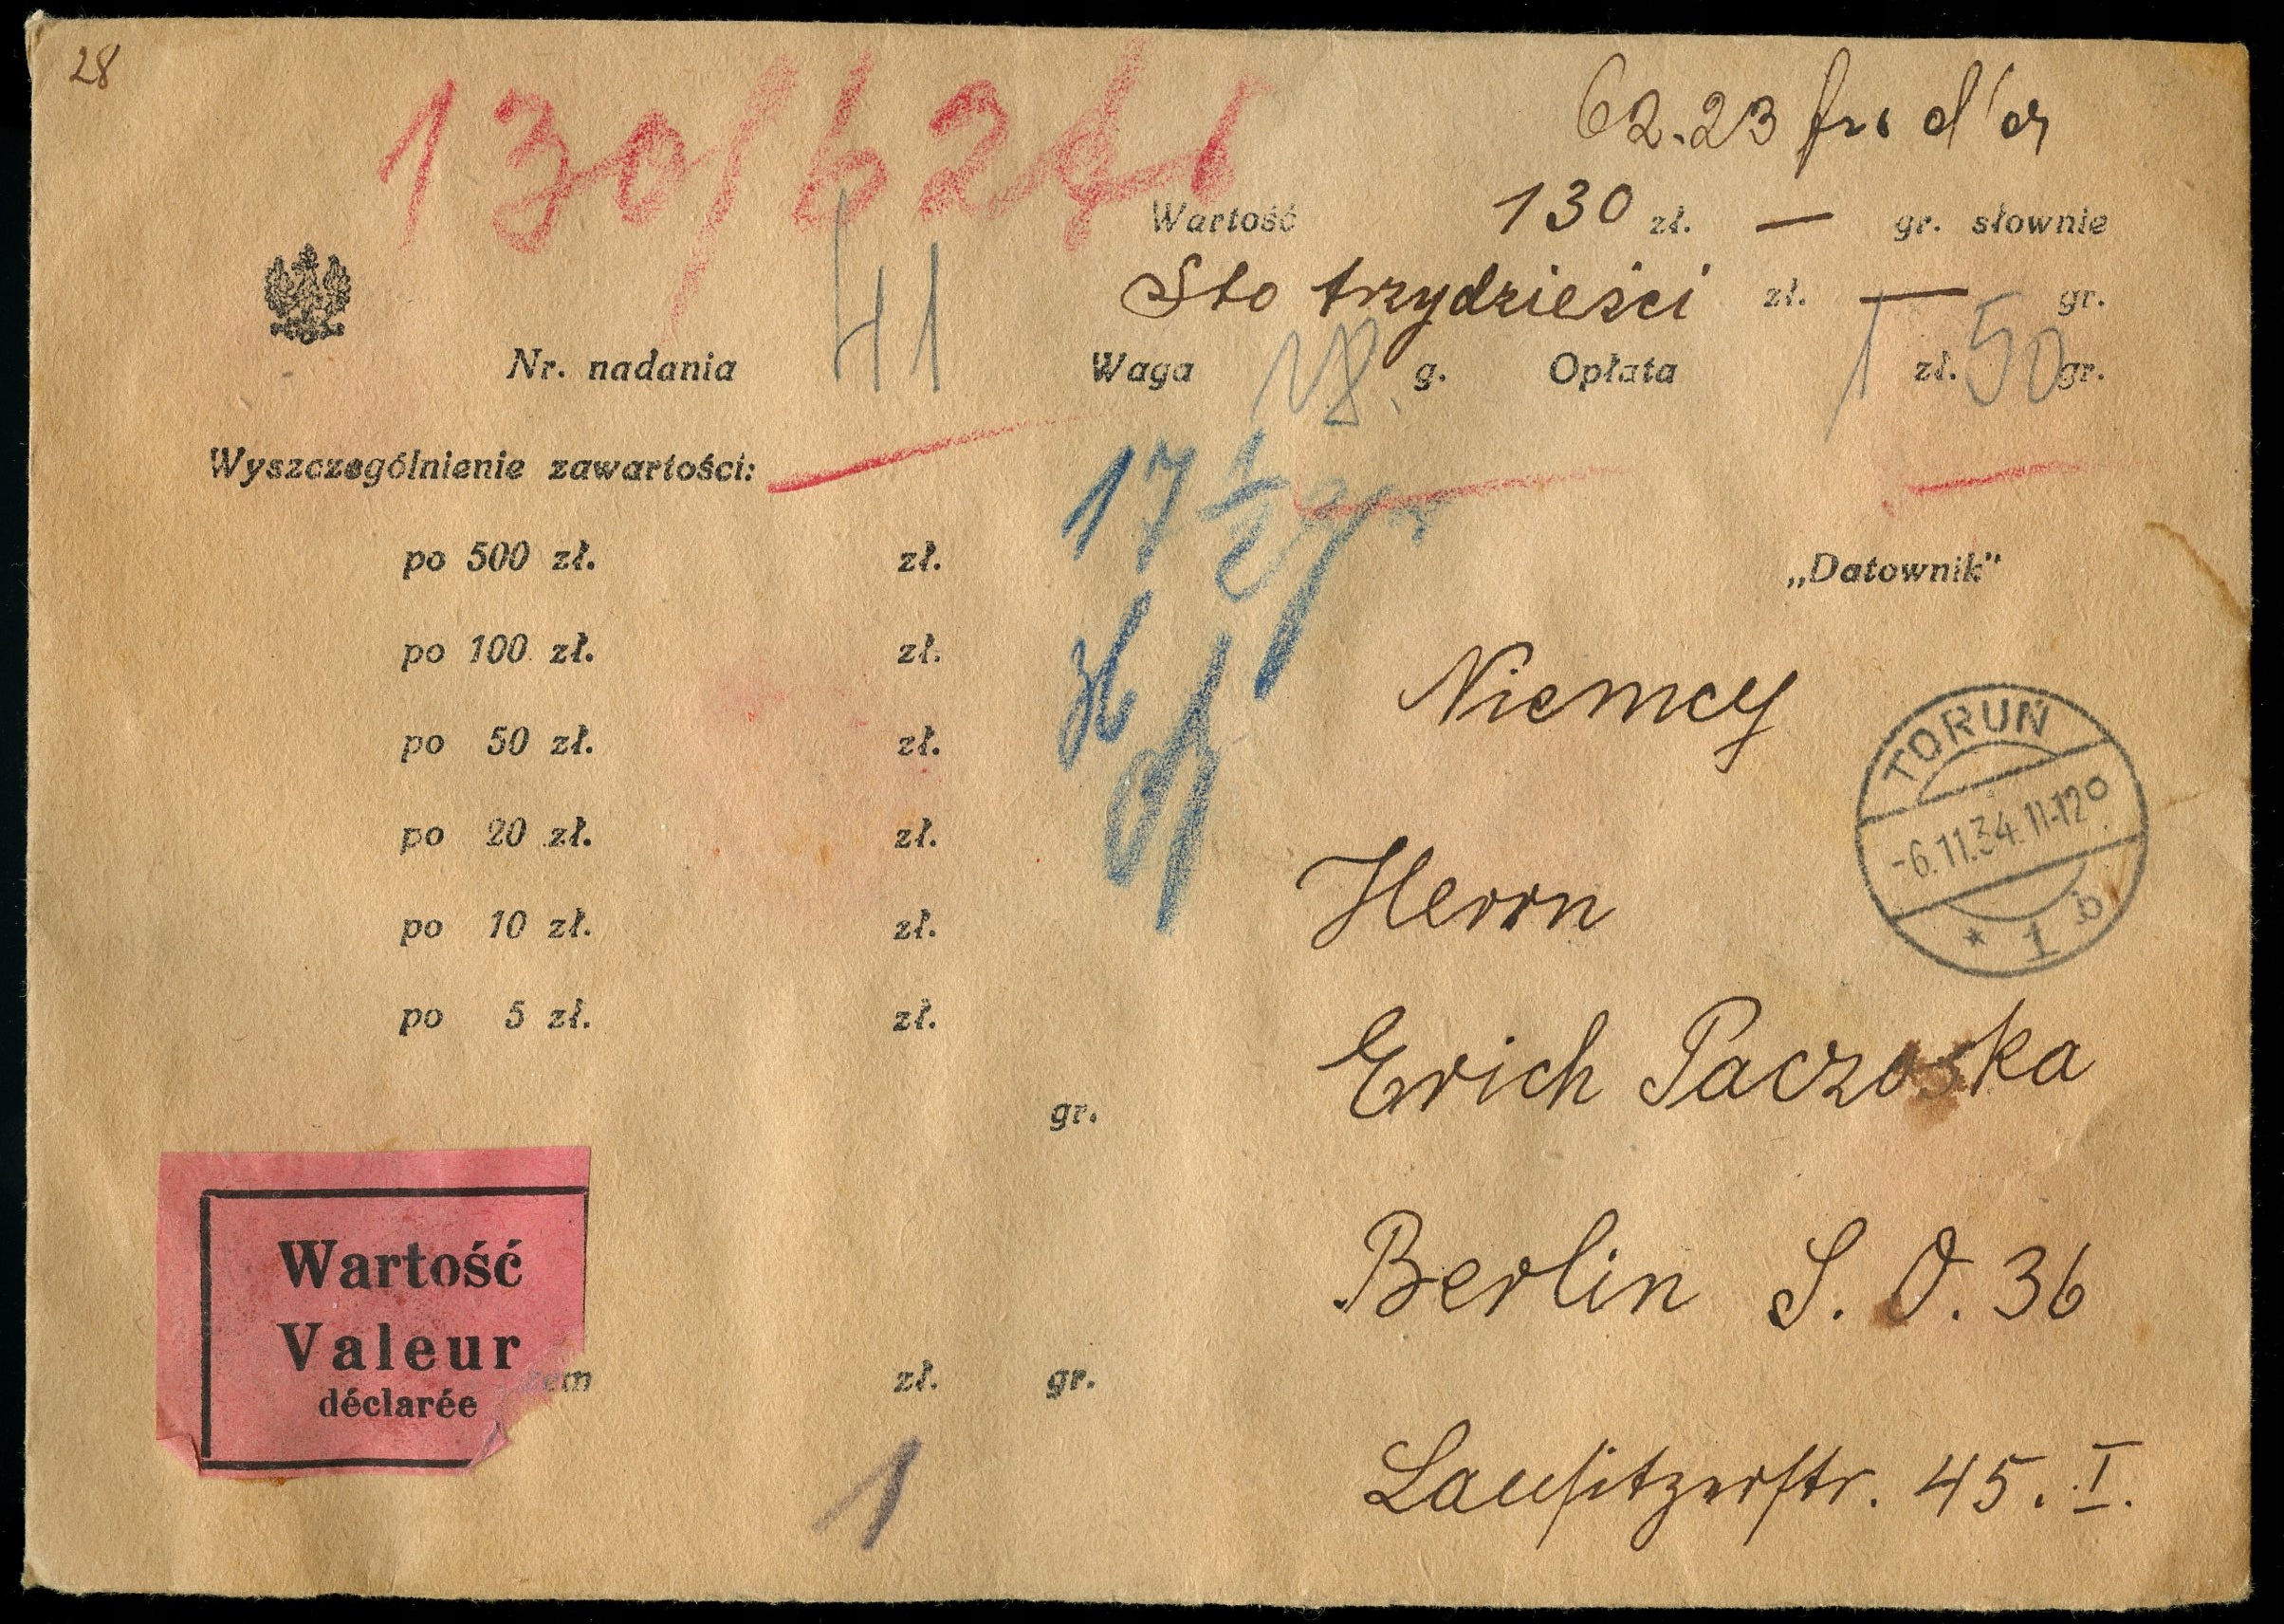 28
130/62
62.23 frs d'or
Wartość 130 zł. — gr. słownie
Sto trzydzieści zł. — gr.
Nr. nadania 41 Waga 18 g. Opłata 1 zł. 50 gr.
Wyszczególnienie zawartości:
17 1/2 gr
po 500 zł. zł.
„Datownik”
36
po 100 zł. zł.
Niemcy
po 50 zł. zł.
TORUŃ
-6.11.34.11-12⁰
* 1 b
po 20 zł. zł.
po 10 zł. zł.
Herrn
po 5 zł. zł.
Erich Paczoska
gr.
Wartość
Valeur
déclarée
Berlin S. O. 36
zem zł. gr.
Lauſitzerſtr. 45. I.
1